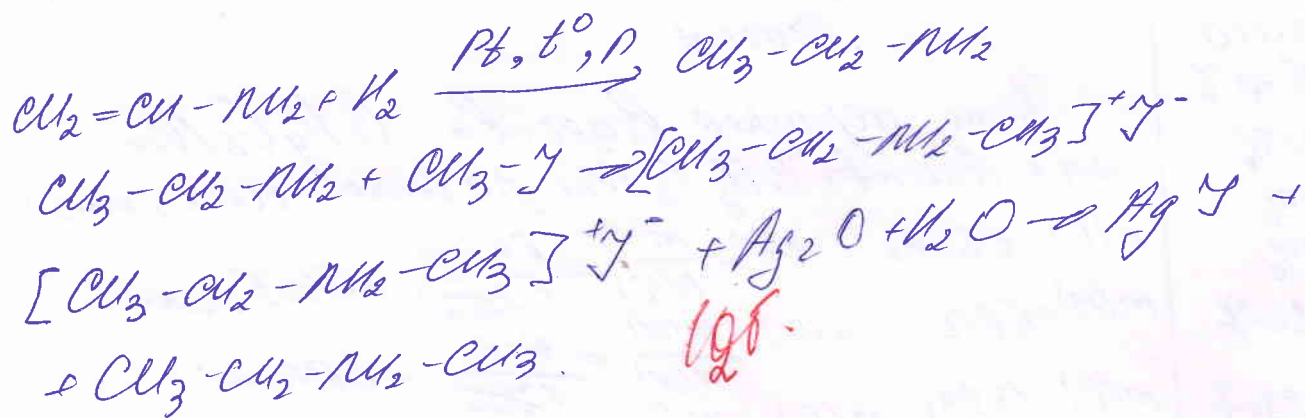 CH₂=CH-NH₂+H₂ Pt, t⁰, P, → CH₃-CH₂-NH₂
CH₃-CH₂-NH₂+ CH₃-J → [CH₃-CH₂-NH₂-CH₃]⁺J⁻
[CH₃-CH₂-NH₂-CH₃]⁺J⁻ + Ag₂O +H₂O → AgJ +
+ CH₃-CH₂-NH₂-CH₃.